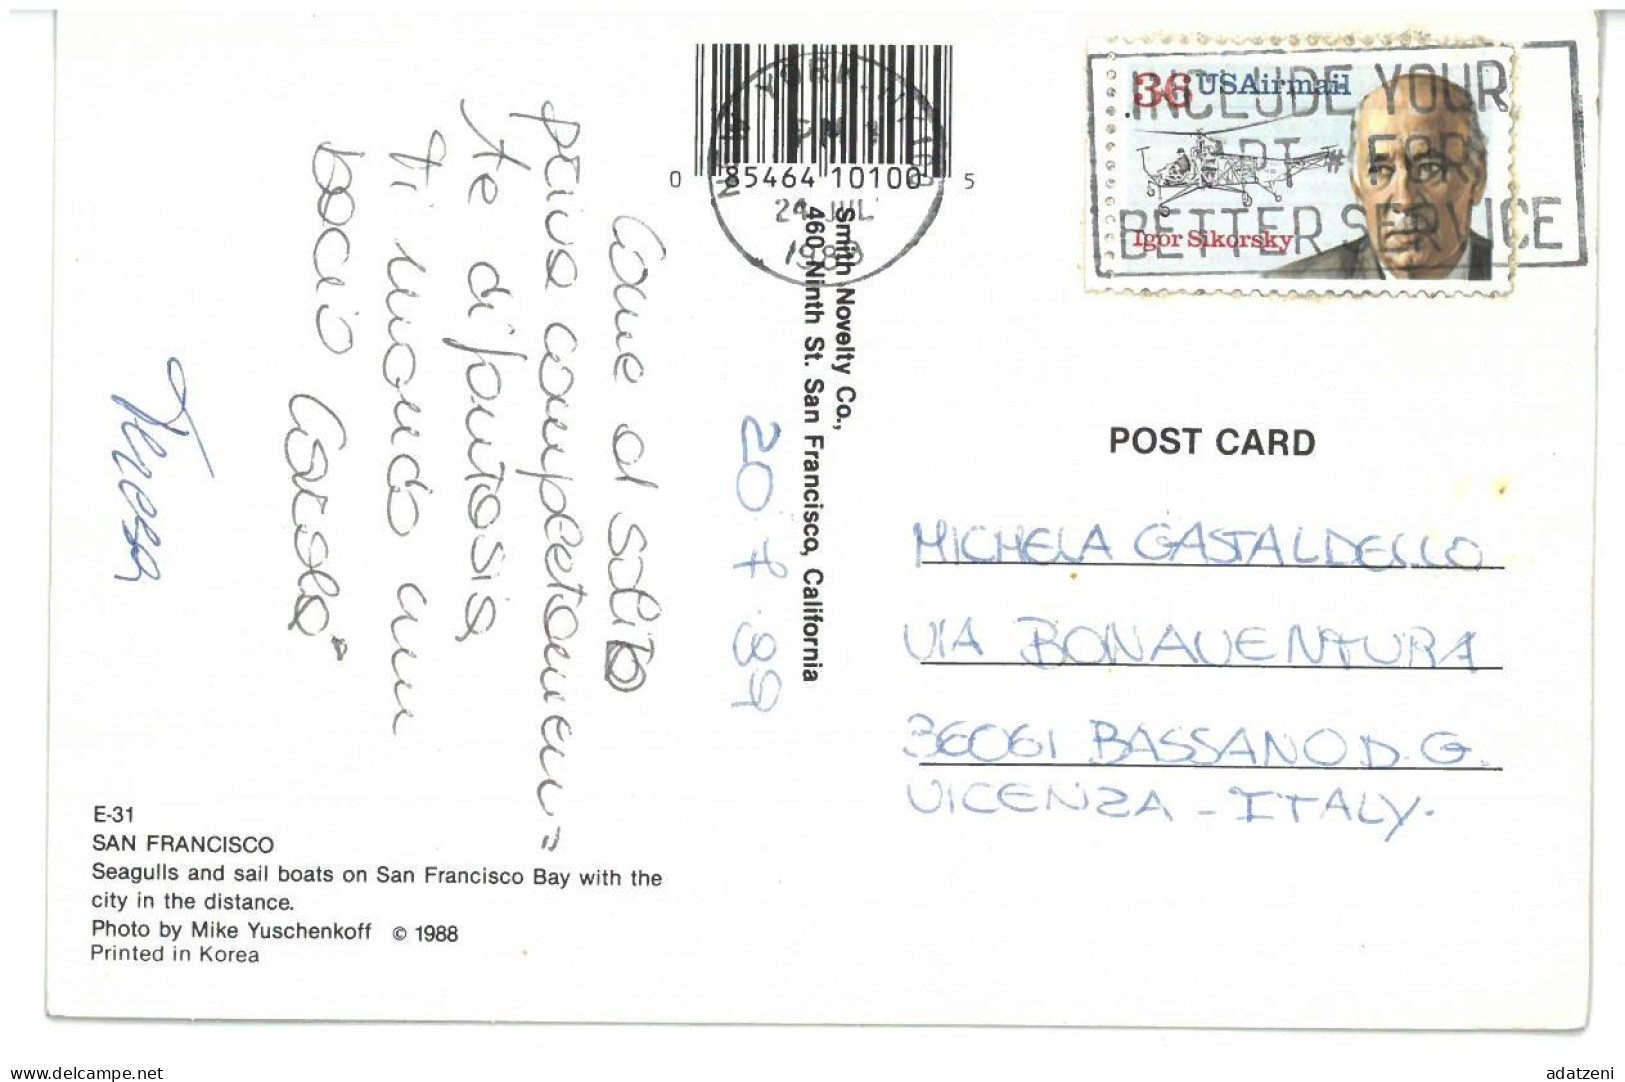 Come al solito
priva completamen=
te di fantasia
ti mando un
bacio
Teresa
20 7 89
0 85464 10100 5
24 JUL
1989
Smith Novelty Co.,
460 Ninth St. San Francisco, California
36 USAirmail
Igor Sikorsky
INCLUDE YOUR
APT # FOR
BETTER SERVICE
POST CARD
MICHELA GASTALDELLO
VIA BONAVENTURA
36061 BASSANO D. G.
VICENZA - ITALY.
E-31
SAN FRANCISCO
Seagulls and sail boats on San Francisco Bay with the
city in the distance.
Photo by Mike Yuschenkoff © 1988
Printed in Korea
www.delcampe.net
adatzeni